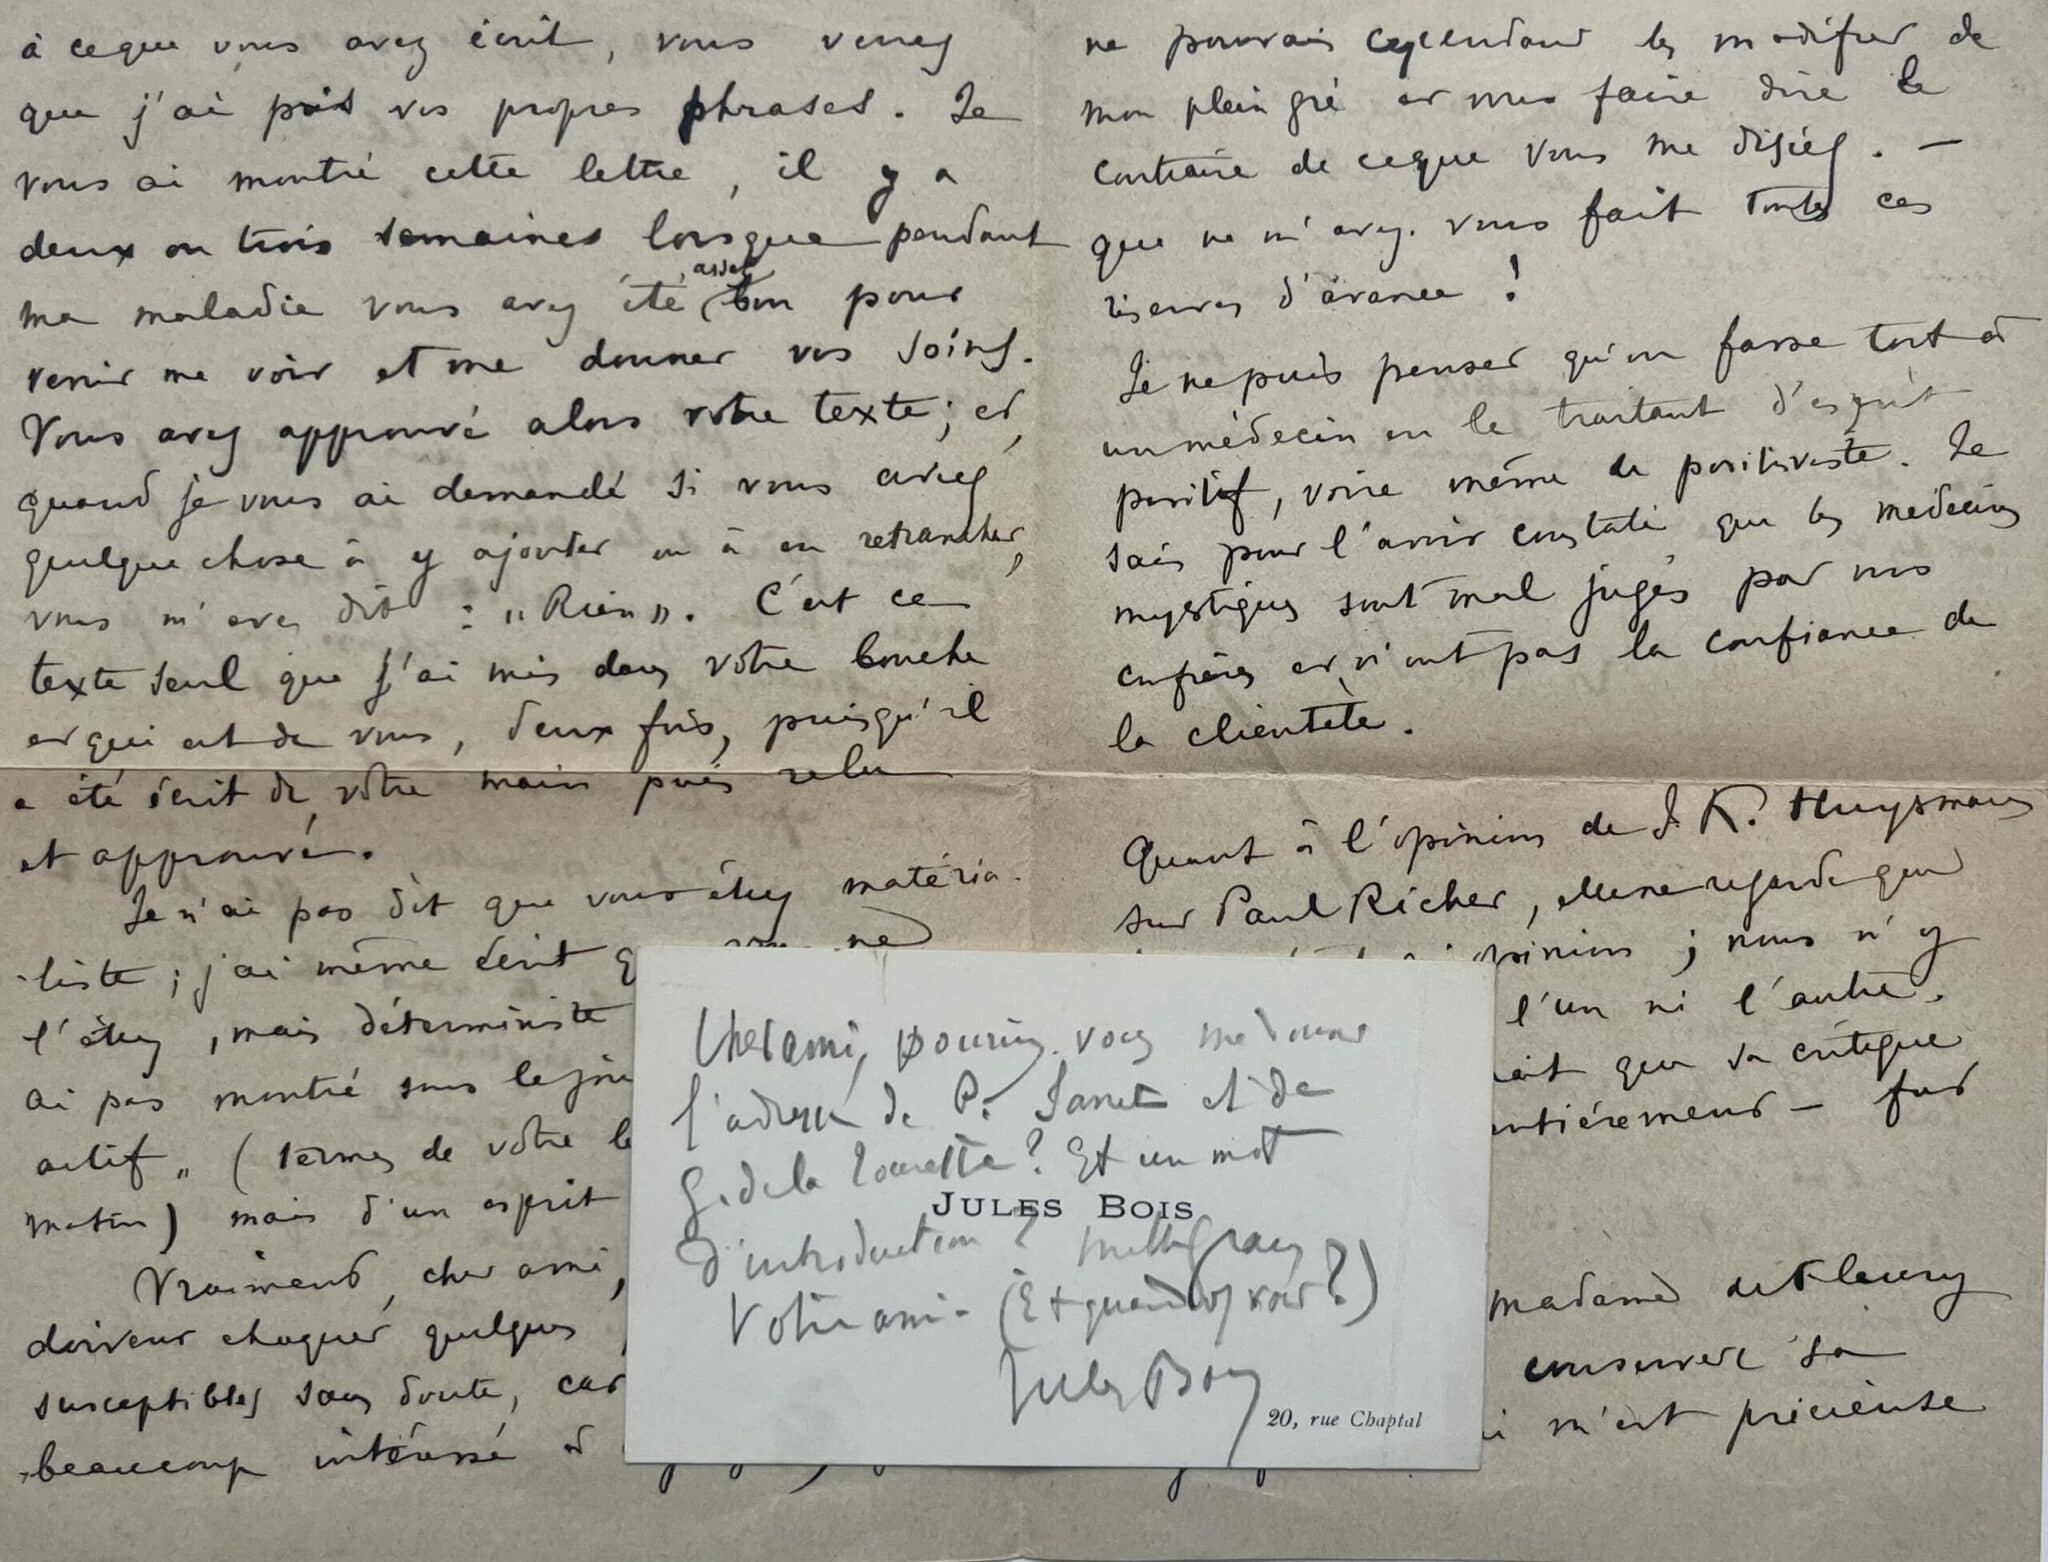 à ceque vous avez écrit, vous verrez
que j'ai pris vos propres phrases. Je
vous ai montré cette lettre, il y a
deux ou trois semaines lorsque pendant
ma maladie vous avez été assez bon pour
venir me voir et me donner vos soins.
Vous avez approuvé alors votre texte; et,
quand je vous ai demandé si vous aviez
quelque chose à y ajouter ou à en retrancher,
vous m'avez dit : "Rien". C'est ce
texte seul que j'ai mis dans votre bouche
et qui est de vous, deux fois, puisqu'il
a été écrit de votre main puis relu
et approuvé.
Je n'ai pas dit que vous étiez matéria-
-liste ; j'ai même écrit ne
l'étiez, mais déterministe
ai pas montré sous le
actif" (termes de votre
matin) mais d'un esprit
Vraiment, cher ami,
doivent choquer quelques
susceptibles sans doute, car
beaucoup intéressé
ne pouvais cependant les modifier de
mon plein gré et vous faire dire le
contraire de ceque vous me disiez. —
que ne m'avez-vous fait toutes ces
réserves d'avance !
Je ne puis penser qu'on fasse tort à
un médecin en le traitant d'esprit
positif, voire même de positiviste. Je
sais pour l'avoir constaté que les médecins
mystiques sont mal jugés par nos
confrères et n'ont pas la confiance de
la clientèle.
Quant à l'opinion de J. K. Huysmans
sur Paul Richer, elle ne regarde que
opinion ; nous n'y
l'un ni l'autre.
que sa critique
entièrement — fut
madame de Fleury
conserver sa
m'est précieuse
Cher ami, pourriez-vous me donner
l'adresse de P. Janet et de
G. de la Tourette ? Et un mot
JULES BOIS
d'introduction ? Mille grâces
Votre ami - (Et quand vs voir ?)
Jules Bois
20, rue Chaptal